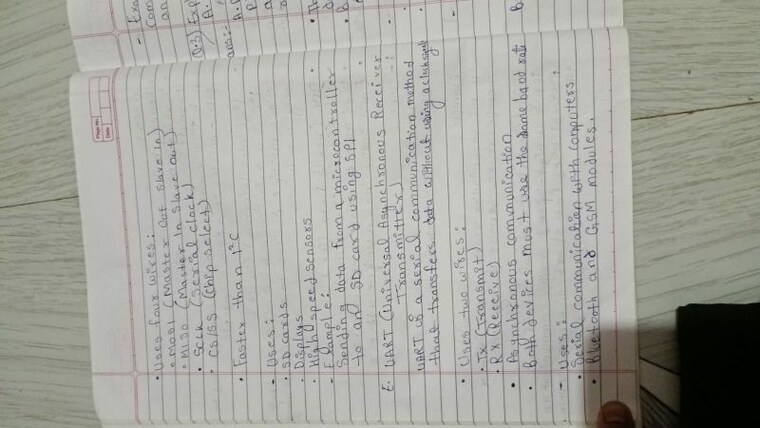 • Uses four wires:
• MOSI (Master Out Slave In)
• MISO (Master In Slave Out)
• SCLK (Serial clock)
• CS/SS (Chip select)
• Faster than I²C
- Uses:
• SD cards
• Displays
• High speed sensors
- Example:
Sending data from a microcontroller
to an SD card using SPI
UART (Universal Asynchronous Receiver
Transmitter)
UART is a serial communication method
that transfers data without using a
• Uses two wires:
• Tx (Transmit)
• Rx (Receive)
• Asynchronous communication
• Both devices must use the same band rate
- Uses:
• Serial communication with computers
• Bluetooth and GSM modules.